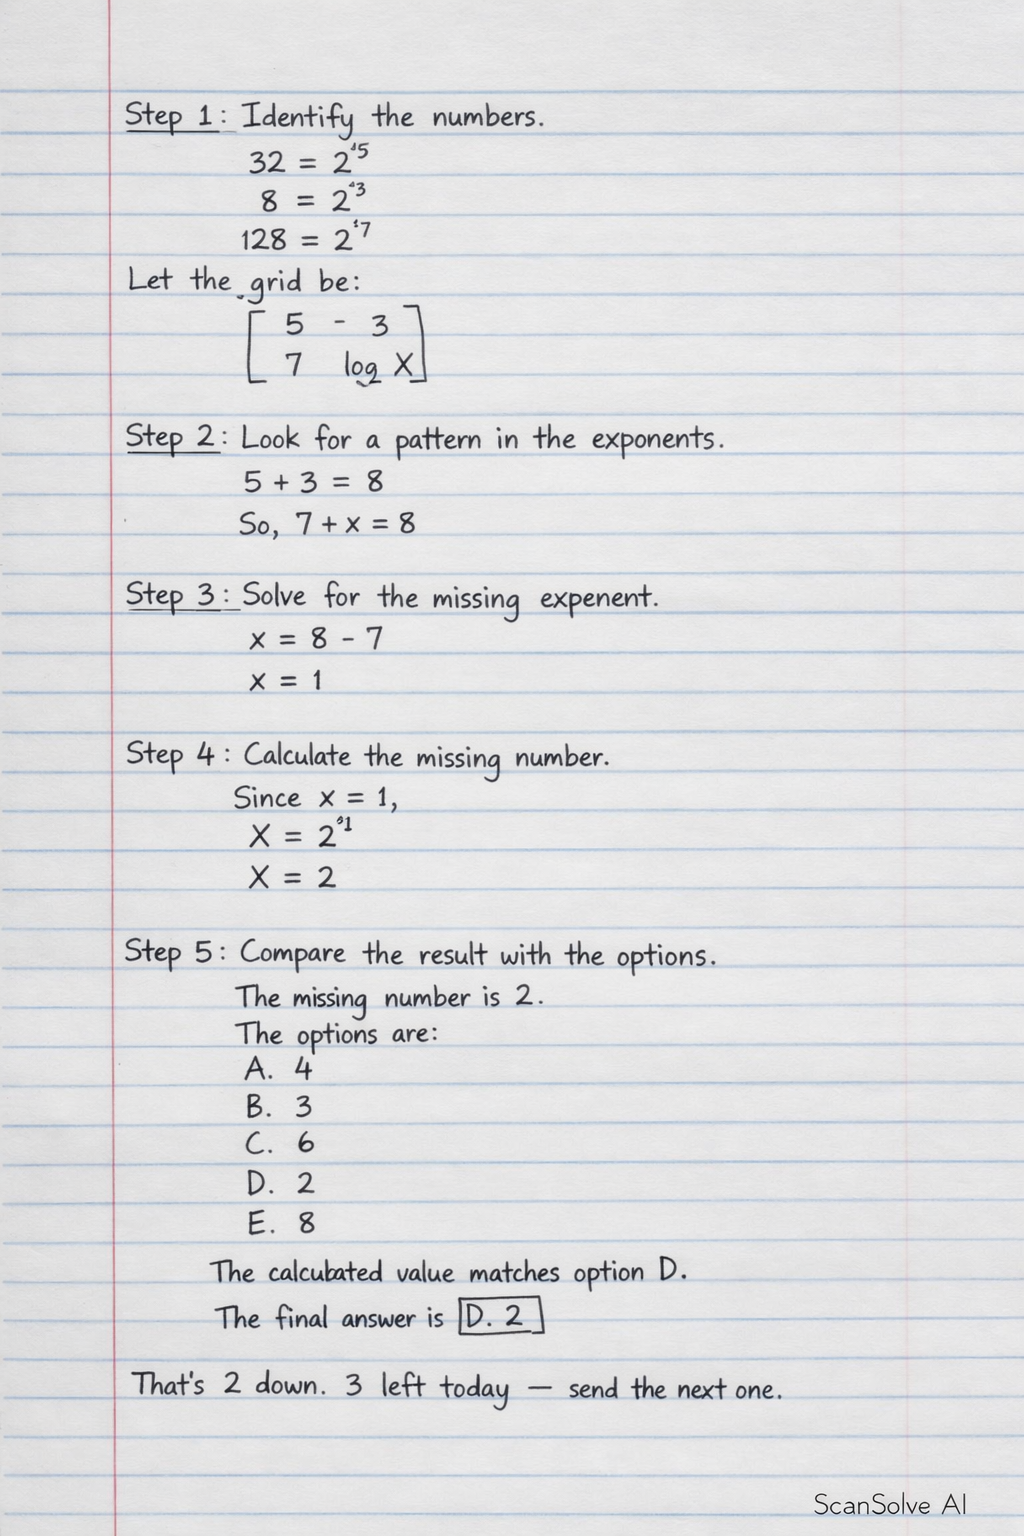 Step 1: Identify the numbers.
32 = 2^5
8 = 2^3
128 = 2^7
Let the grid be:
[ 5 - 3
7 log X ]
Step 2: Look for a pattern in the exponents.
5 + 3 = 8
So, 7 + x = 8
Step 3: Solve for the missing expenent.
x = 8 - 7
x = 1
Step 4: Calculate the missing number.
Since x = 1,
X = 2^1
X = 2
Step 5: Compare the result with the options.
The missing number is 2.
The options are:
A. 4
B. 3
C. 6
D. 2
E. 8
The calcubated value matches option D.
The final answer is D. 2
That's 2 down. 3 left today — send the next one.
ScanSolve AI